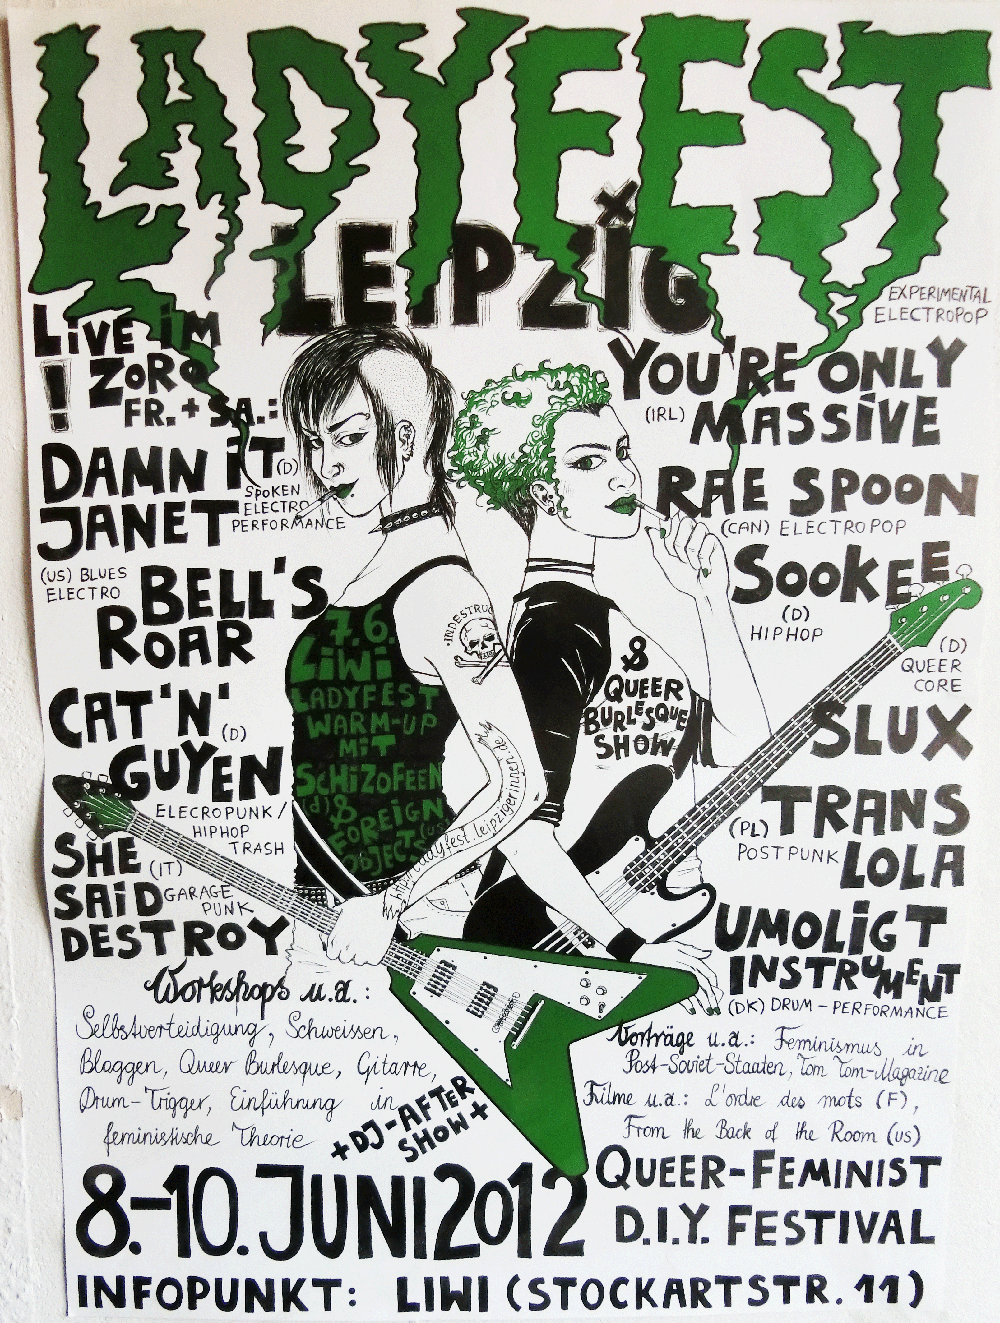 LADYFEST
LEIPZIG
LiVE iM
! ZORO
FR. + SA.:
DAMN iT (D)
JANET
SPOKEN
ELECTRO
PERFORMANCE
(US) BLUES
ELECTRO
BELL'S
ROAR
CAT'N' (D)
GUYEN
ELECROPUNK/
HIPHOP
TRASH
SHE (IT)
SAiD
DESTROY
GARAGE
PUNK
EXPERIMENTAL
ELECTROPOP
YOU'RE ONLY
(IRL) MASSiVE
RAE SPOON
(CAN) ELECTROPOP
SOOKEE
(D)
HIPHOP
(D)
QUEER
CORE
SLUX
(PL) TRANS
POSTPUNK LOLA
UMOLiGT
INSTRUMENT
(DK) DRUM-PERFORMANCE
INDESTRUC
7.6.
LiWi
LADYFEST
WARM-UP
MiT
SCHiZOFEEN
(d) &
FOREiGN
OBJECTS (us)
ladyfest.leipzigerinnen.de
&
QUEER
BURLESQUE
SHOW
Workshops u.a.:
Selbstverteidigung, Schweissen,
Bloggen, Queer Burlesque, Gitarre,
Drum-Trigger, Einführung in
feministische Theorie
+DJ-AFTER
SHOW+
Vorträge u.a.: Feminismus in
Post-Soviet-Staaten, Tom Tom-Magazine
Filme u.a.: L'ordre des mots (F),
From the Back of the Room (US)
8.-10. JUNI 2012
QUEER-FEMINIST
D.I.Y. FESTIVAL
INFOPUNKT: LIWI (STOCKARTSTR. 11)